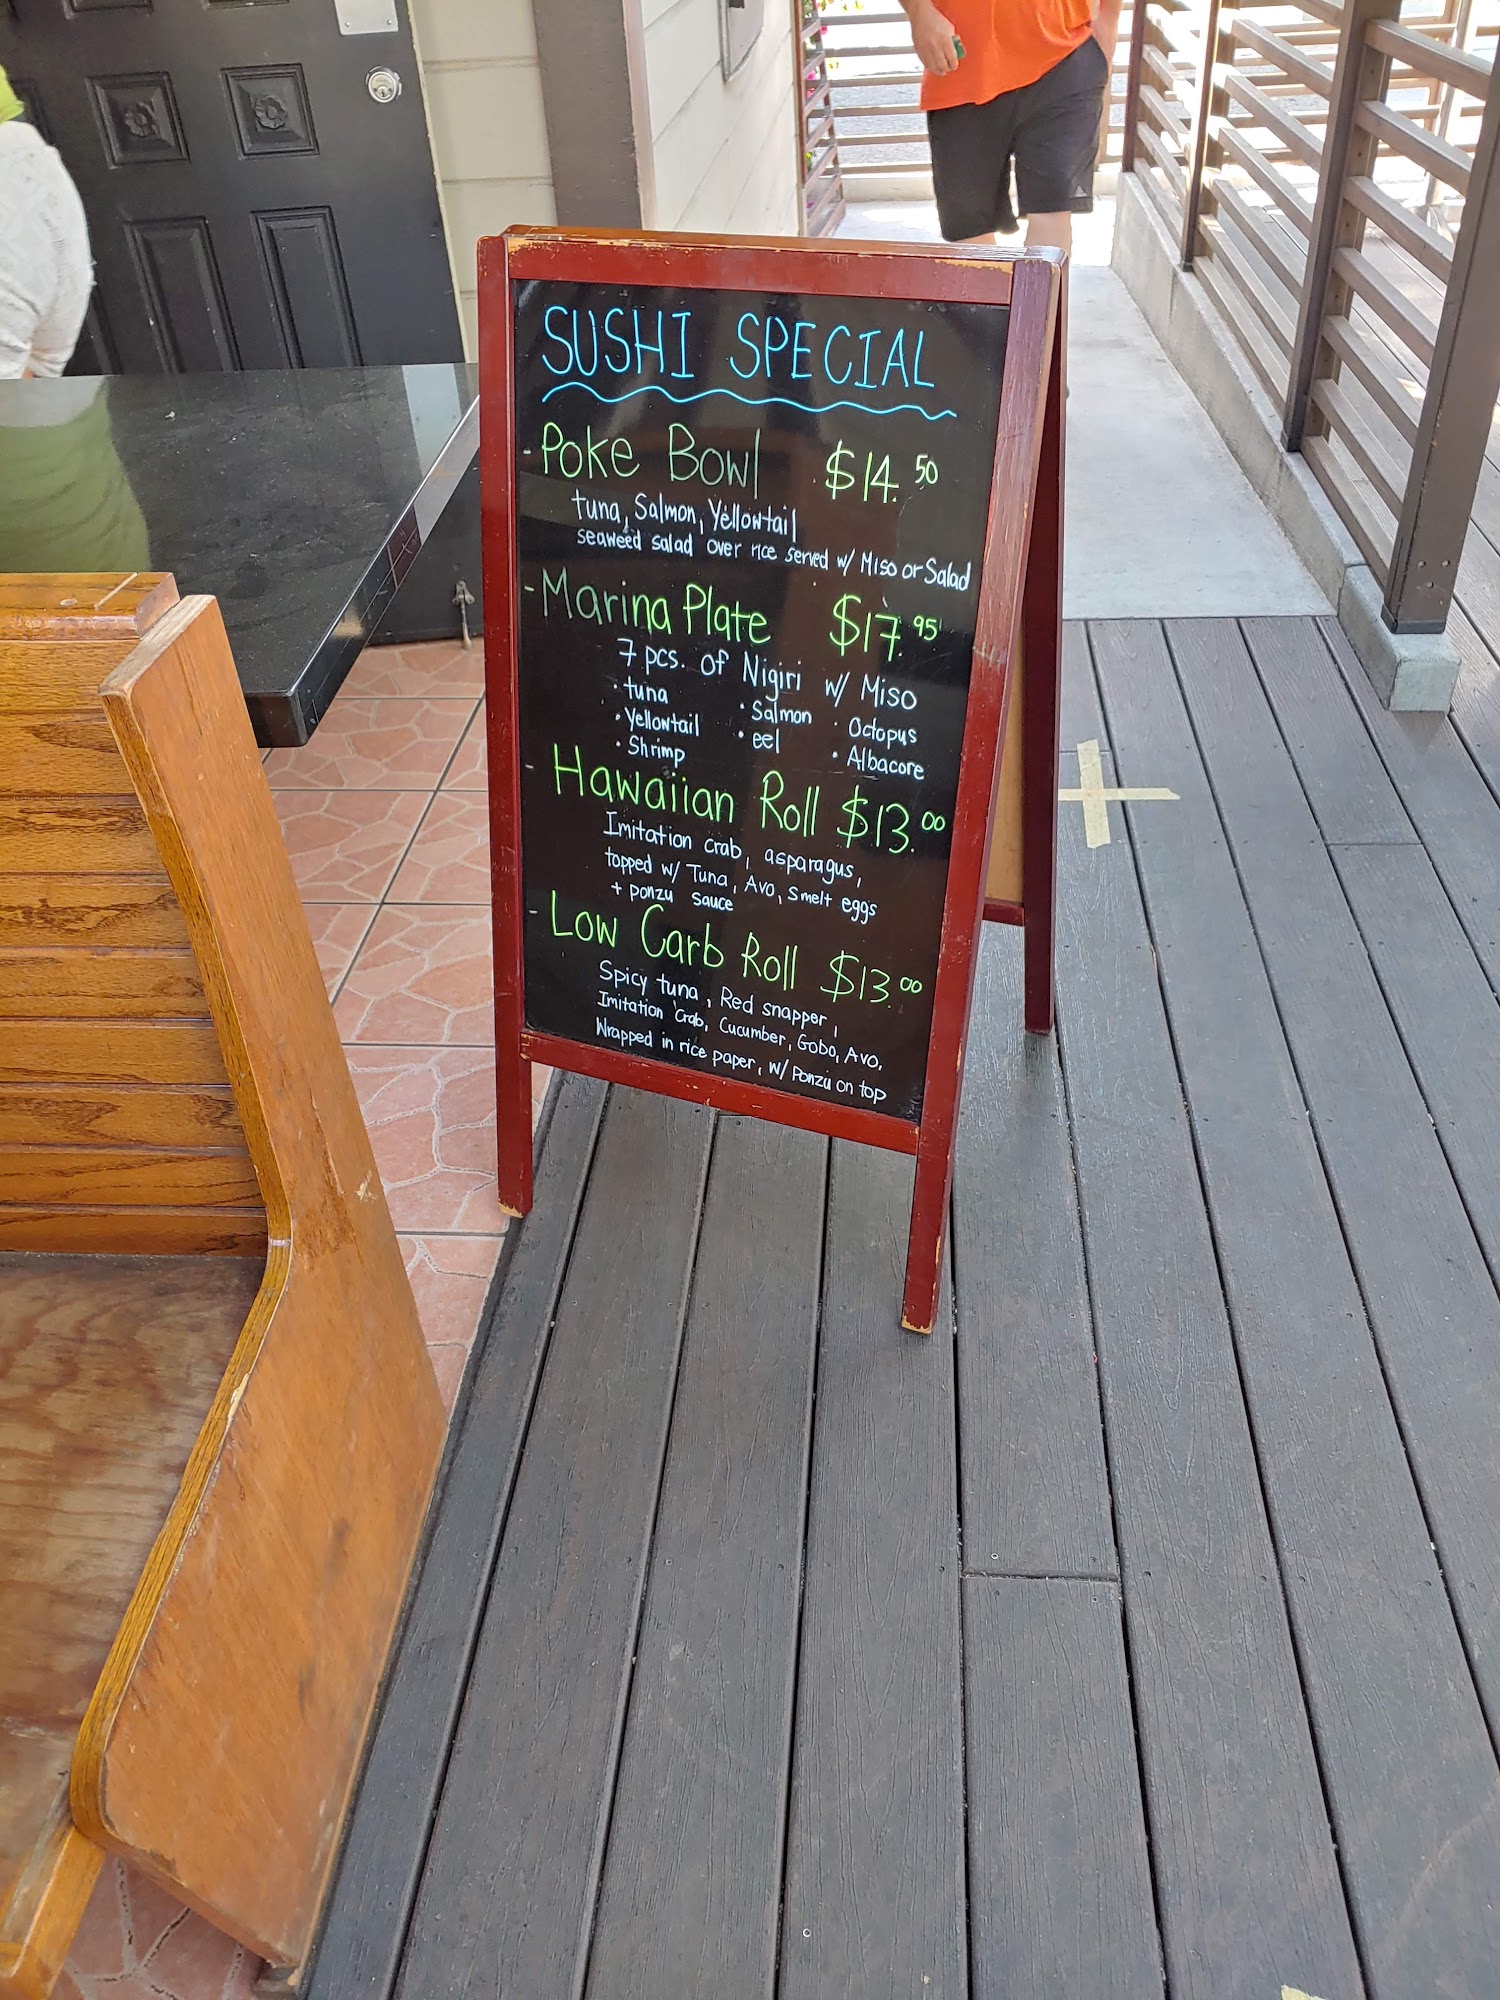 SUSHI SPECIAL
- Poke Bowl $14.50
tuna, Salmon, Yellowtail
seaweed salad over rice served w/ Miso or Salad
- Marina Plate $17.95
7 pcs. of Nigiri w/ Miso
• tuna • Salmon • Octopus
• Yellowtail • eel • Albacore
• Shrimp
- Hawaiian Roll $13.00
Imitation crab, asparagus,
topped w/ Tuna, Avo, Smelt eggs
+ ponzu sauce
- Low Carb Roll $13.00
Spicy tuna, Red snapper,
Imitation Crab, Cucumber, Gobo, Avo,
Wrapped in rice paper, w/ Ponzu on top